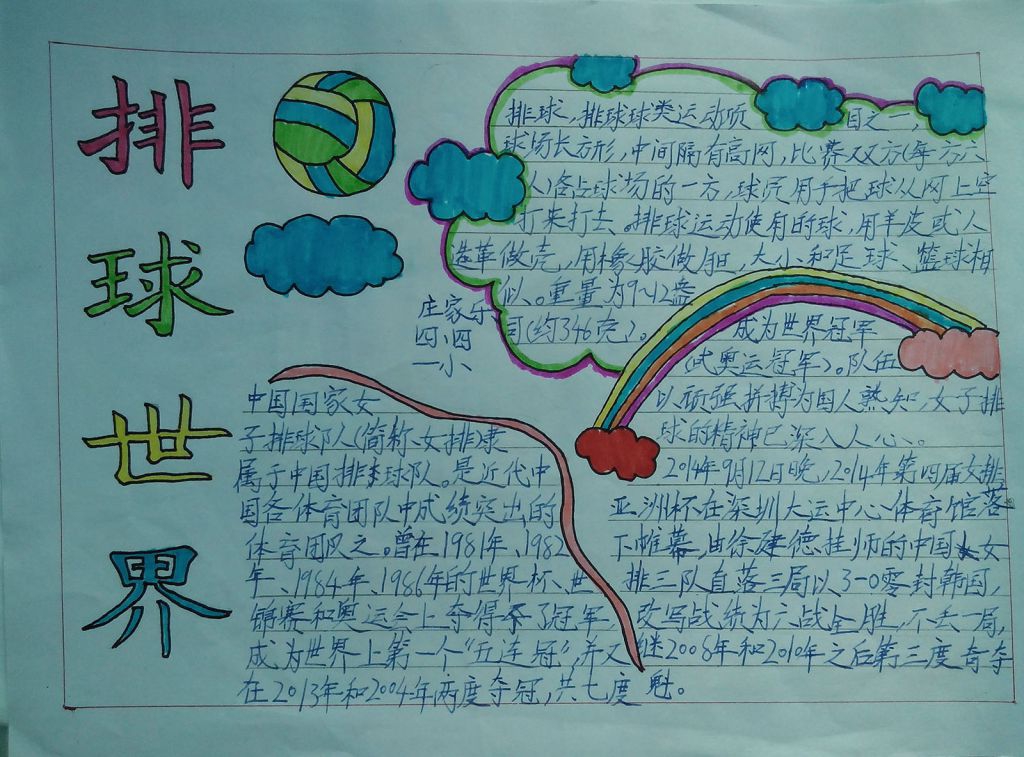 排球世界
排球,排球球类运动项目之一,
球场长方形,中间隔有高网,比赛双方(每方六
人)各占球场的一方,球员用手把球从网上空
打来打去。排球运动使有的球,用羊皮或人
造革做壳,用橡胶做胆,大小和足球、篮球相
似。重量为9~12盎
司(约346克)。
庄家乐
四、四
一小
中国国家女
子排球队(简称女排)隶
属于中国排球队。是近代中
国各体育团队中成绩突出的
体育团队之。曾在1981年、1982
年、1984年、1986年的世界杯、世
锦赛和奥运会上夺得了冠军,
成为世界上第一个“五连冠”,并又
在2013年和2004年两度夺冠,共七度
成为世界冠军
(式奥运冠军)。队伍
以顽强拼搏为国人熟知,女子排
球的精神已深入人心、。
2014年9月12日晚,2014年第四届女排
亚洲杯在深圳大运中心体育馆落
下帷幕,由徐建德挂师的中国女
排三队直落三局以3-0零封韩国,
改写战绩为六战全胜,不丢一局,
继2008年和2010年之后第三度奇夺
魁。